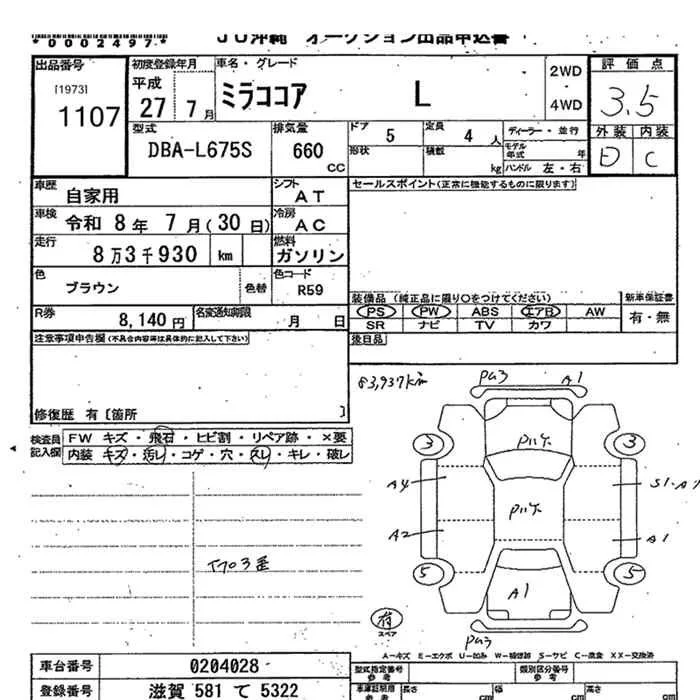 *0002497*
JU沖縄 オークション出品申込書
出品番号
[1973]
1107
初度登録年月
平成
27 7月
車名・グレード
ミラココア L
2WD
・
4WD
評価点
3.5
外装 内装
D C
型式
DBA-L675S
排気量
660
CC
ドア 5
定員 4 人
ディーラー・並行
形状
積数
kg
モデル年式 年
ハンドル 左・右
車歴
自家用
シフト
AT
セールスポイント(正常に機能するものに限ります)
車検
令和 8年 7月(30日)
冷房
AC
走行
8万3千930 km
燃料
ガソリン
色
ブラウン
色替
色コード
R59
装備品 (純正品に限り○をつけてください)
新車保証書
PS PW ABS エアB AW
有・無
SR ナビ TV カワ
R券
8,140円
名変通知期限
月 日
後日品
注意事項申告欄(不具合内容等は具体的に記入して下さい)
修復歴 有〔箇所 〕
検査員
記入欄
FW キズ・飛石・ヒビ割・リペア跡・×要
内装 キズ・汚レ・コゲ・穴・スレ・キレ・破レ
83,937km
pu3 A1
3 3
A4
A2
A1
5 5
A1
pu3
有
スペア
A―キズ E―エクボ U―凹み W―補修跡 S―サビ C―腐食 XX―交換済
車台番号
0204028
型式指定番号
参考
類別区分番号
参考
登録番号
滋賀 581 て 5322
車庫証明用
参考
長さ
cm
幅
cm
高さ
cm